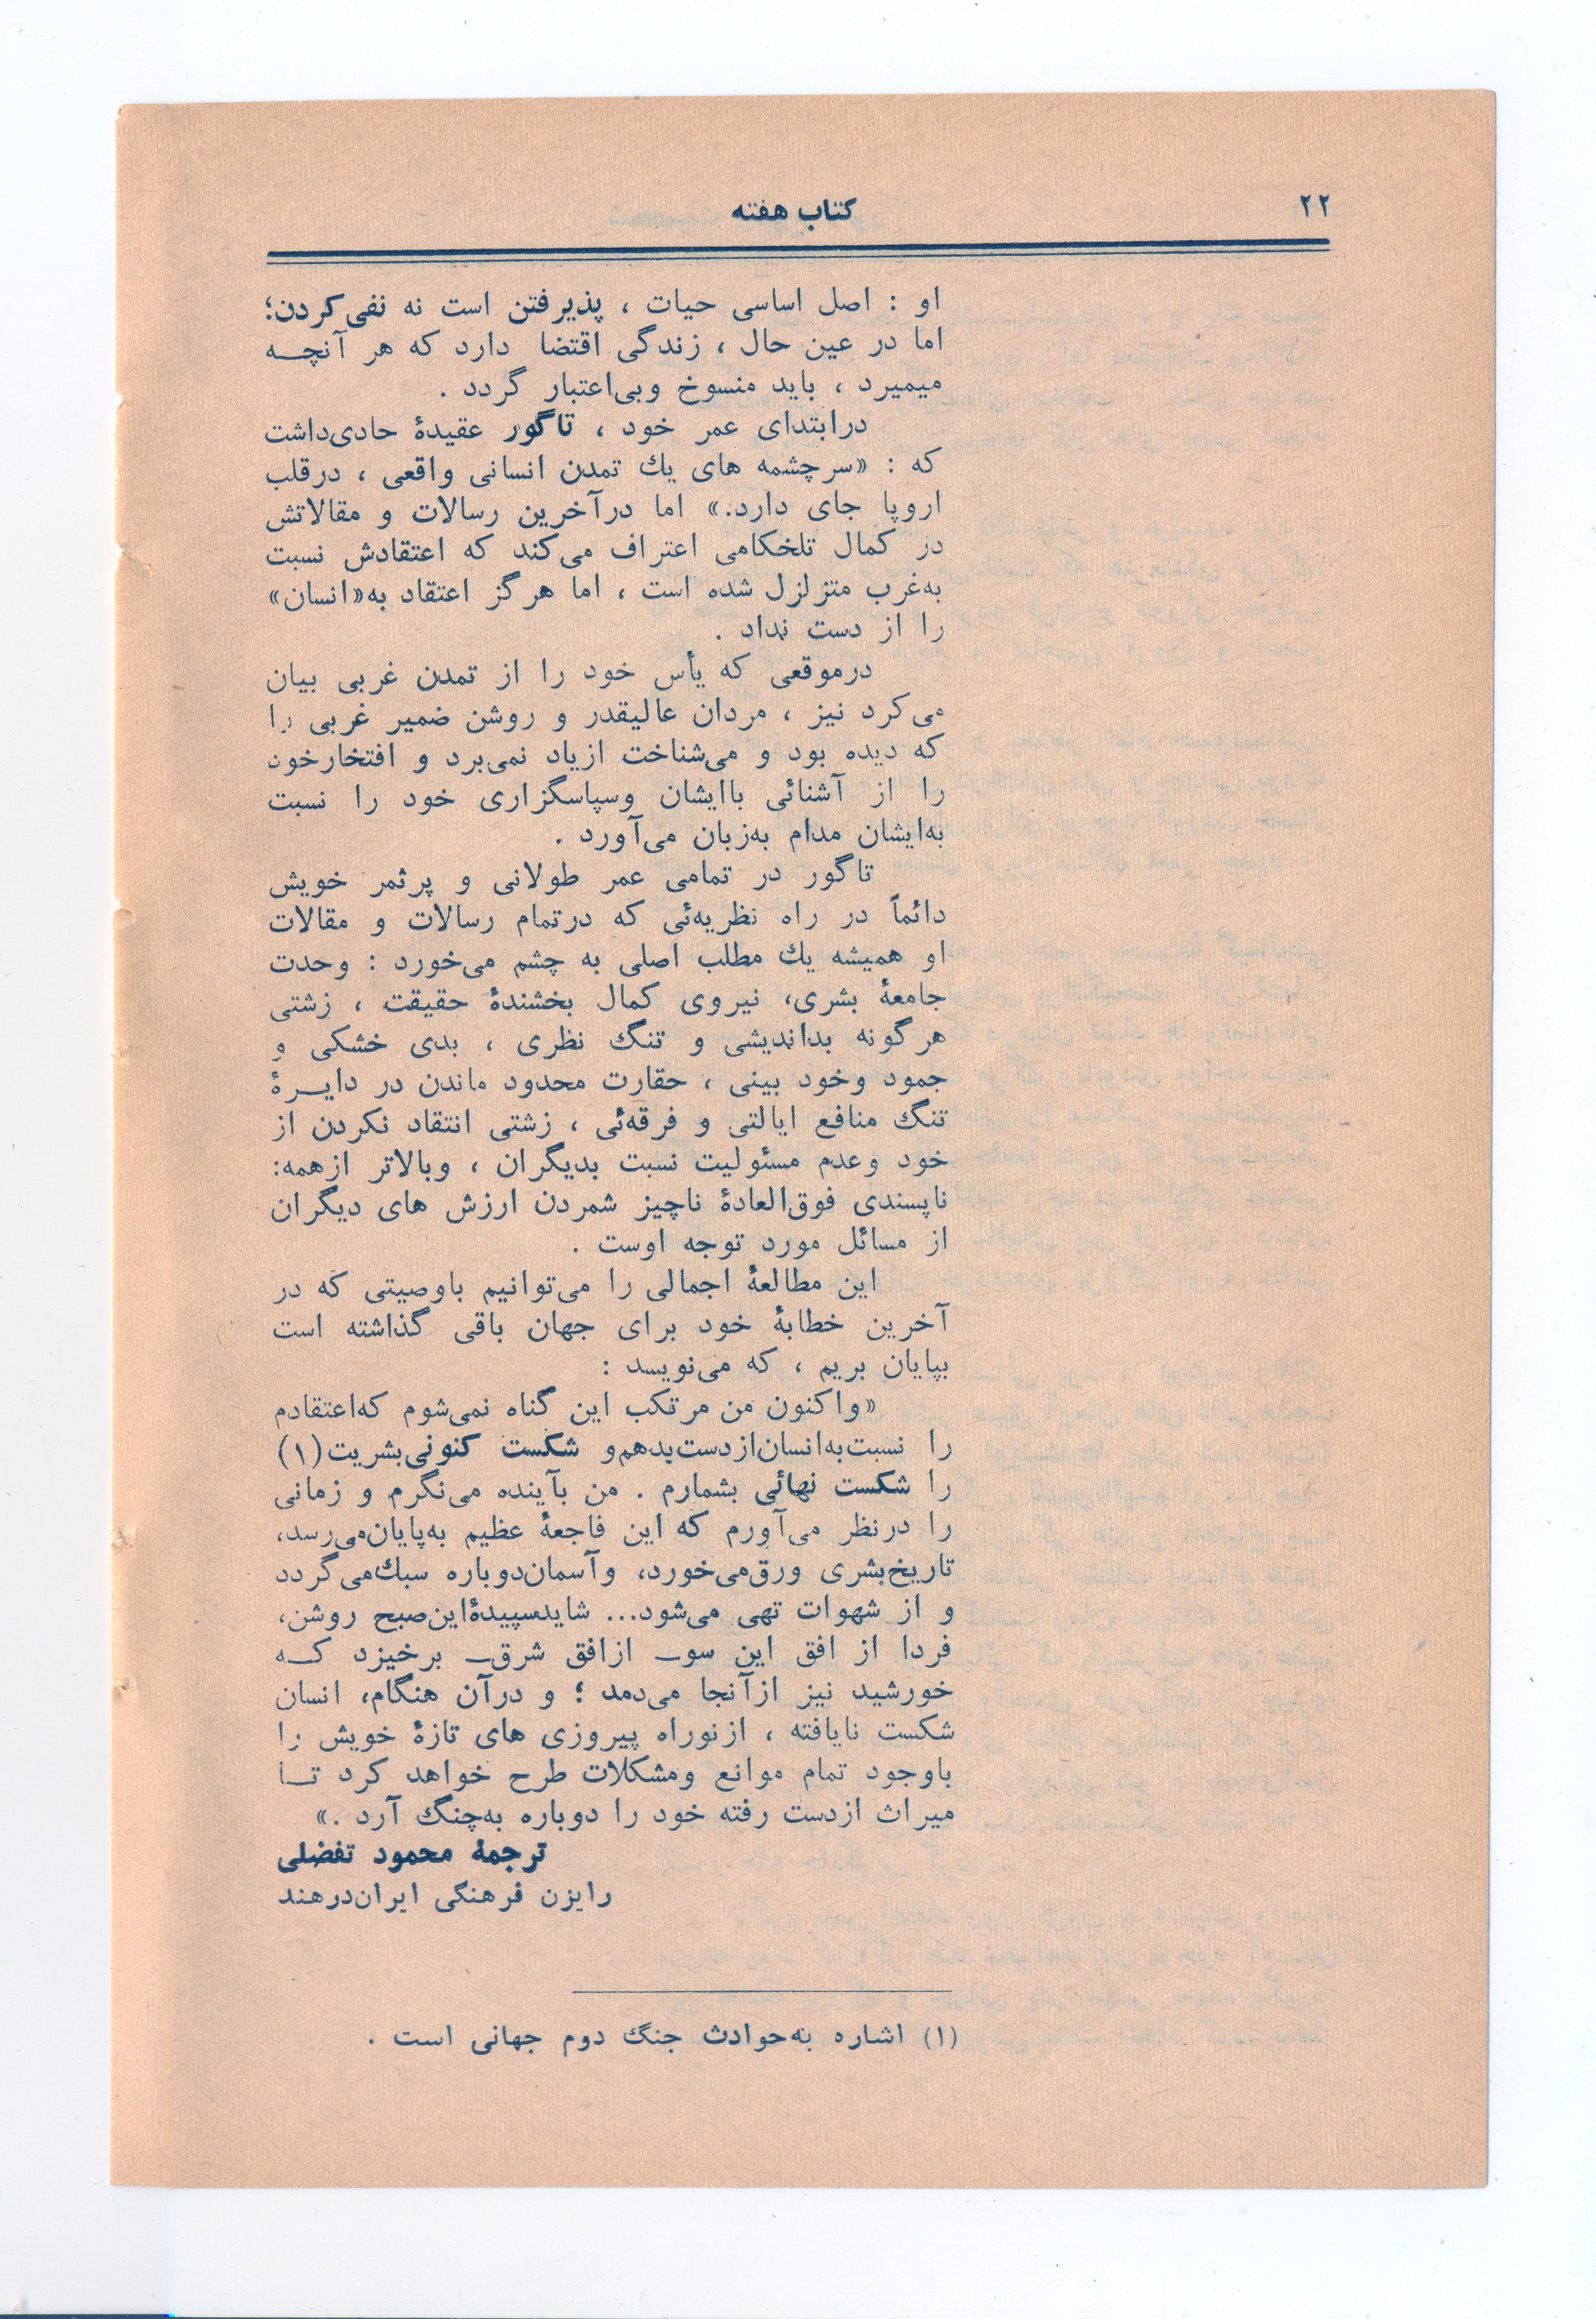 ۲۲
کتاب هفته
او : اصل اساسی حیات ، پذیرفتن است نه نفی‌کردن؛
اما در عین حال ، زندگی اقتضا دارد که هر آنچـه
میمیرد ، باید منسوخ وبی‌اعتبار گردد .
درابتدای عمر خود ، تاگور عقیدهٔ حادی‌داشت
که : «سرچشمه های یك تمدن انسانی واقعی ، درقلب
اروپا جای دارد.» اما درآخرین رسالات و مقالاتش
در کمال تلخکامی اعتراف می‌کند که اعتقادش نسبت
به‌غرب متزلزل شده است ، اما هرگز اعتقاد به«انسان»
را از دست نداد .
درموقعی که یأس خود را از تمدن غربی بیان
می‌کرد نیز ، مردان عالیقدر و روشن ضمیر غربی را
که دیده بود و می‌شناخت ازیاد نمی‌برد و افتخارخود
را از آشنائی باایشان وسپاسگزاری خود را نسبت
به‌ایشان مدام به‌زبان می‌آورد .
تاگور در تمامی عمر طولانی و پرثمر خویش
دائماً در راه نظریه‌ئی که درتمام رسالات و مقالات
او همیشه یك مطلب اصلی به چشم می‌خورد : وحدت
جامعهٔ بشری، نیروی کمال بخشندهٔ حقیقت ، زشتی
هرگونه بداندیشی و تنگ نظری ، بدی خشکی و
جمود وخود بینی ، حقارت محدود ماندن در دایـرهٔ
تنگ منافع ایالتی و فرقه‌ئی ، زشتی انتقاد نکردن از
خود وعدم مسئولیت نسبت بدیگران ، وبالاتر ازهمه:
ناپسندی فوق‌العادهٔ ناچیز شمردن ارزش های دیگران
از مسائل مورد توجه اوست .
این مطالعهٔ اجمالی را می‌توانیم باوصیتی که در
آخرین خطابهٔ خود برای جهان باقی گذاشته است
بپایان بریم ، که می‌نویسد :
«واکنون من مرتکب این گناه نمی‌شوم که‌اعتقادم
را نسبت‌به‌انسان‌ازدست‌بدهم‌و شکست کنونی‌بشریت(۱)
را شکست نهائی بشمارم . من بآینده می‌نگرم و زمانی
را درنظر می‌آورم که این فاجعهٔ عظیم به‌پایان‌می‌رسد،
تاریخ‌بشری ورق‌می‌خورد، وآسمان‌دوباره سبك‌می‌گردد
و از شهوات تهی می‌شود... شایدسپیدهٔ‌این‌صبح روشن،
فردا از افق این سوـ ازافق شرق‌ـ برخیزد کـه
خورشید نیز ازآنجا می‌دمد ؛ و درآن هنگام، انسان
شکست نایافته ، ازنوراه پیروزی های تازهٔ خویش را
باوجود تمام موانع ومشکلات طرح خواهد کرد تـا
میراث ازدست رفته خود را دوباره به‌چنگ آرد .»
ترجمهٔ محمود تفضلی
رایزن فرهنگی ایران‌درهند
(۱) اشاره به‌حوادث جنگ دوم جهانی است .